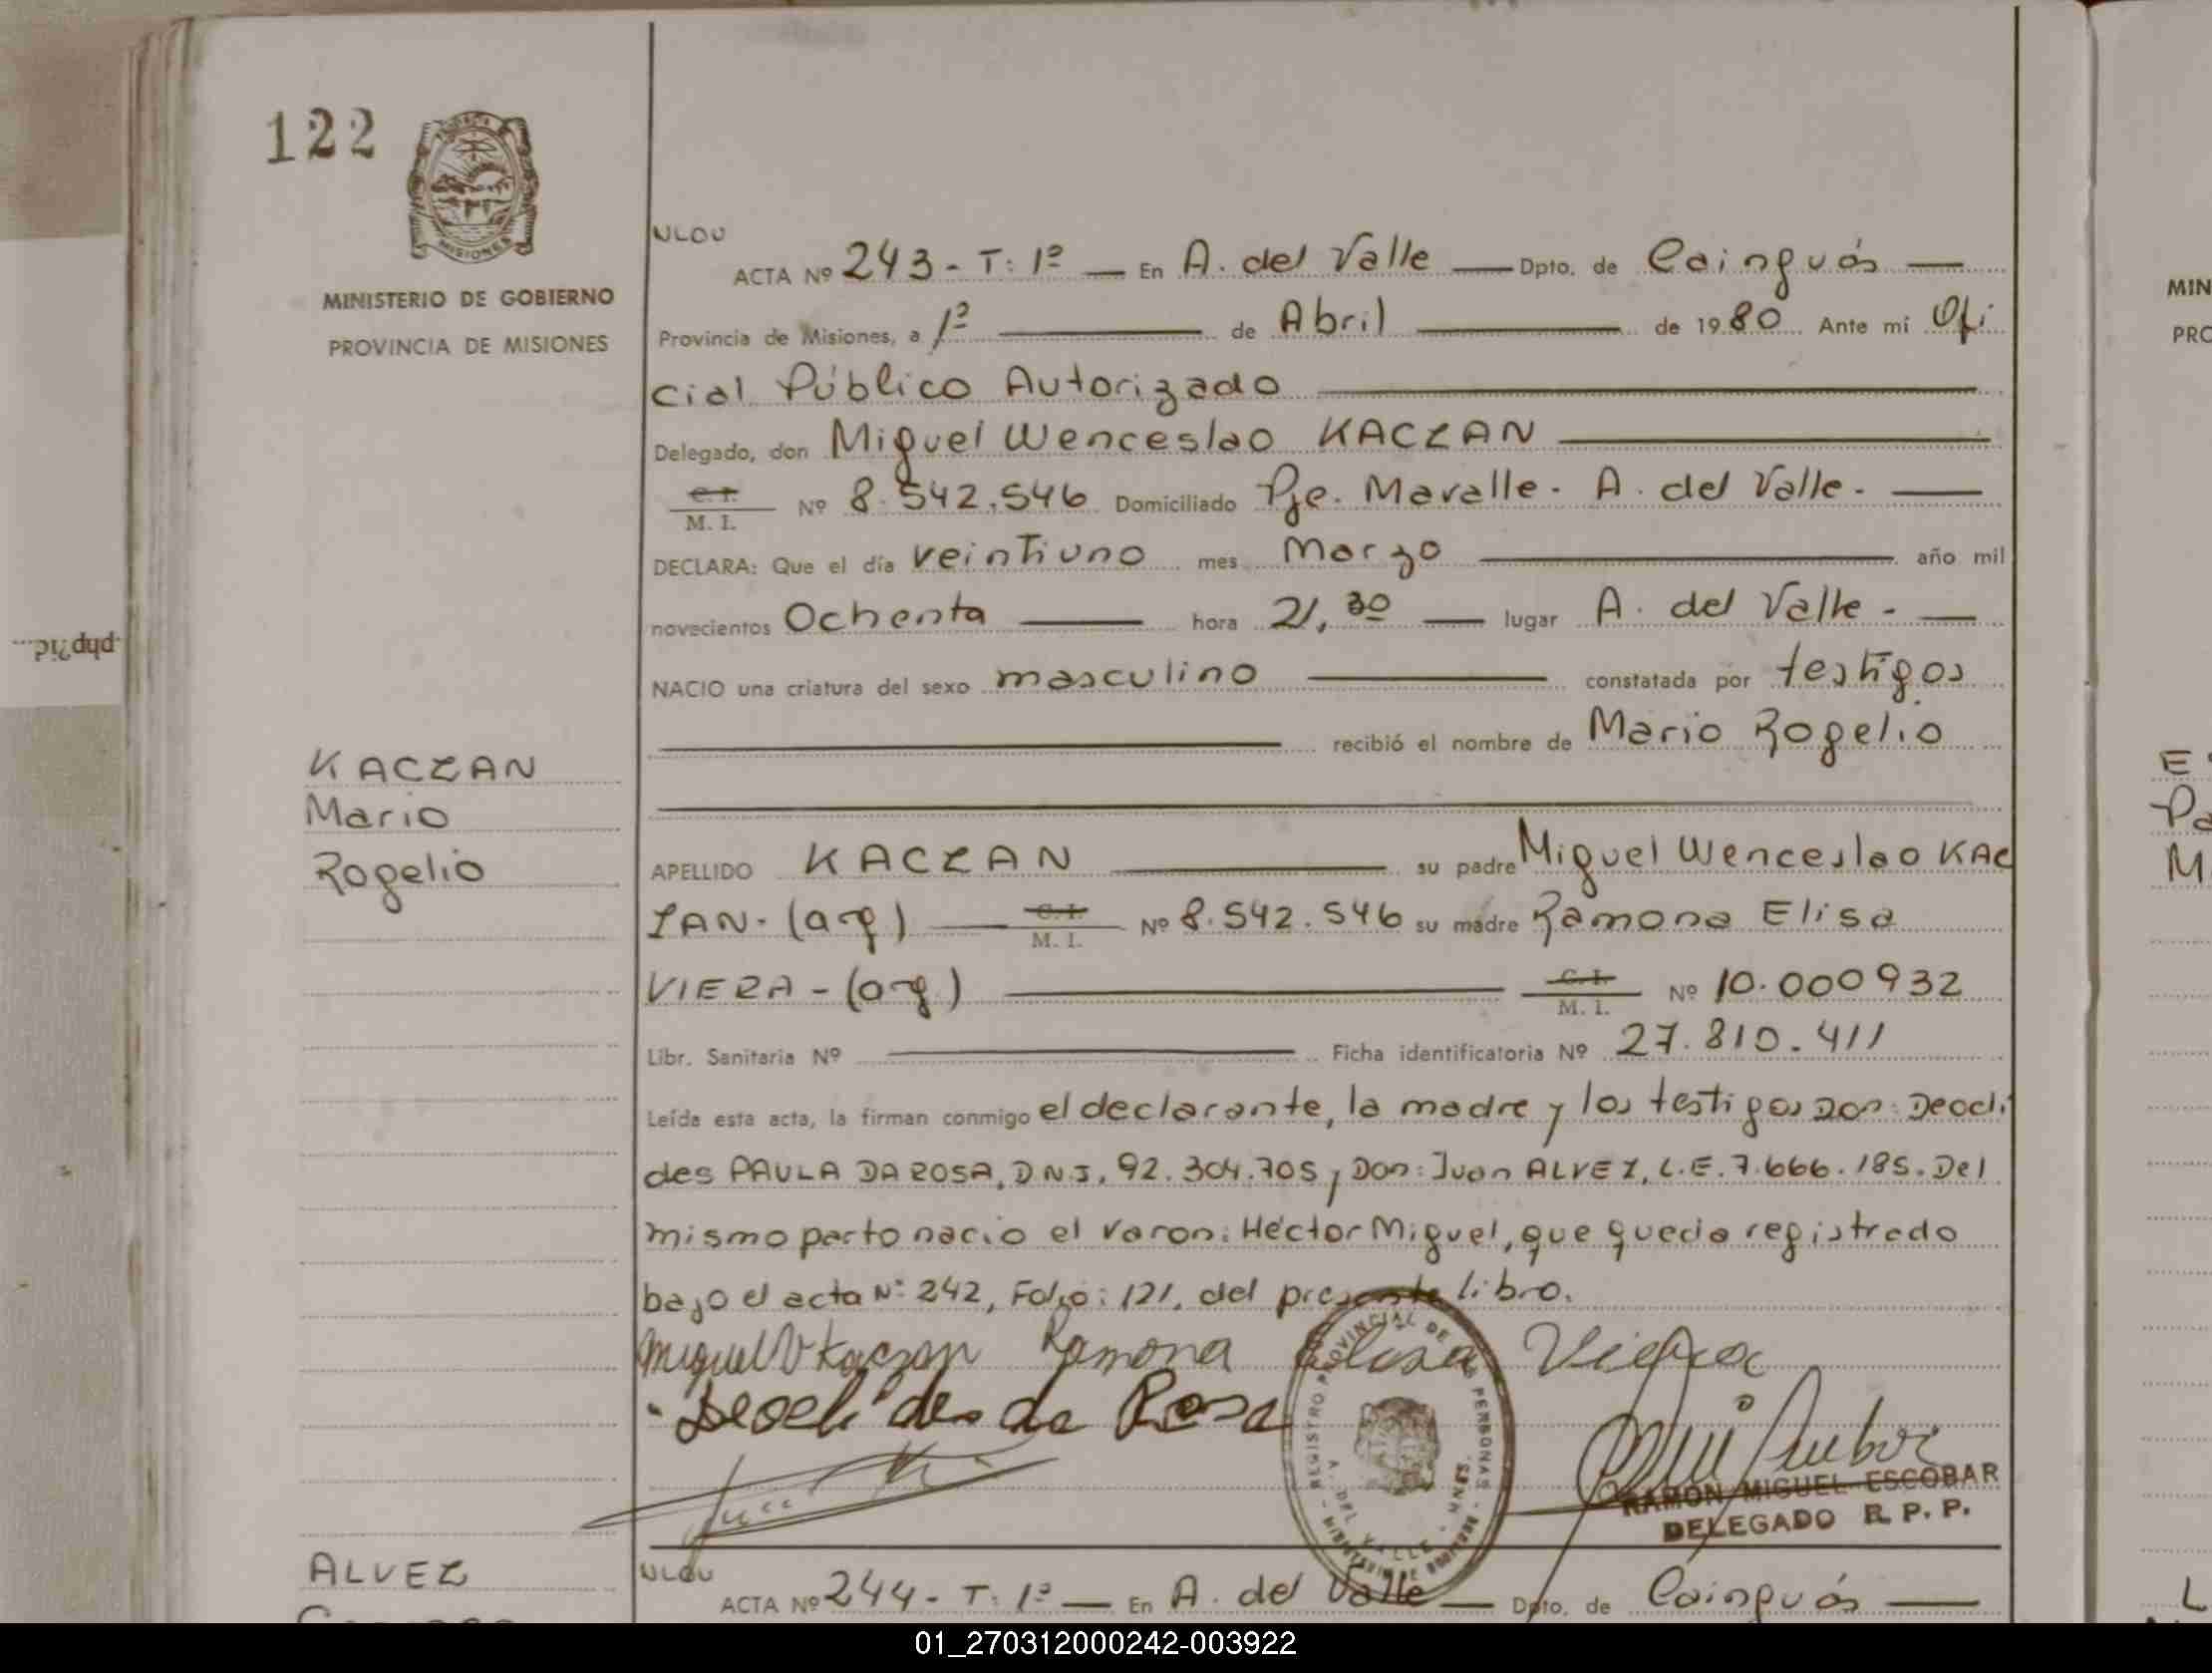 122
MISIONES
MINISTERIO DE GOBIERNO
PROVINCIA DE MISIONES
NLOU
ACTA Nº 243 - T: 1º — En A. del Valle — Dpto. de Cainguás —
Provincia de Misiones, a 1º — de Abril — de 1980 Ante mí Ofi
cial Público Autorizado
Delegado, don Miguel Wenceslao KACZAN
C. I. / M. I. Nº 8.542.546 Domiciliado Pje. Mavalle - A. del Valle. -
DECLARA: Que el día veintiuno mes Marzo — año mil
novecientos Ochenta — hora 21,30 — lugar A. del Valle - —
NACIO una criatura del sexo masculino — constatada por testigos
recibió el nombre de Mario Rogelio
KACZAN
Mario
Rogelio
APELLIDO KACZAN — su padre Miguel Wenceslao KAC
ZAN - (arg) — C. I. / M. I. Nº 8.542.546 su madre Ramona Elisa
VIERA - (arg) — C. I. / M. I. Nº 10.000932
Libr. Sanitaria Nº — Ficha identificatoria Nº 27.810.411
Leída esta acta, la firman conmigo el declarante, la madre y los testigos Don: Deocli
des PAULA DA ROSA, D N I, 92.304.705 y Don: Juan ALVEZ, L.E. 7.666.185. Del
mismo parto nació el varon: Héctor Miguel, que queda registrado
bajo el acta Nº 242, Folio: 121, del presente libro.
Miguel W Kaczan Ramona Elisa Viera
Deoclides da Rosa
REGISTRO PROVINCIAL DE LAS PERSONAS
A. DEL VALLE - MNES.
RAMON MIGUEL ESCOBAR
DELEGADO R. P. P.
ALVEZ
NLOU
ACTA Nº 244 - T: 1º — En A. del Valle — Dpto. de Cainguás —
MIN
PRO
.php?id...
01_270312000242-003922